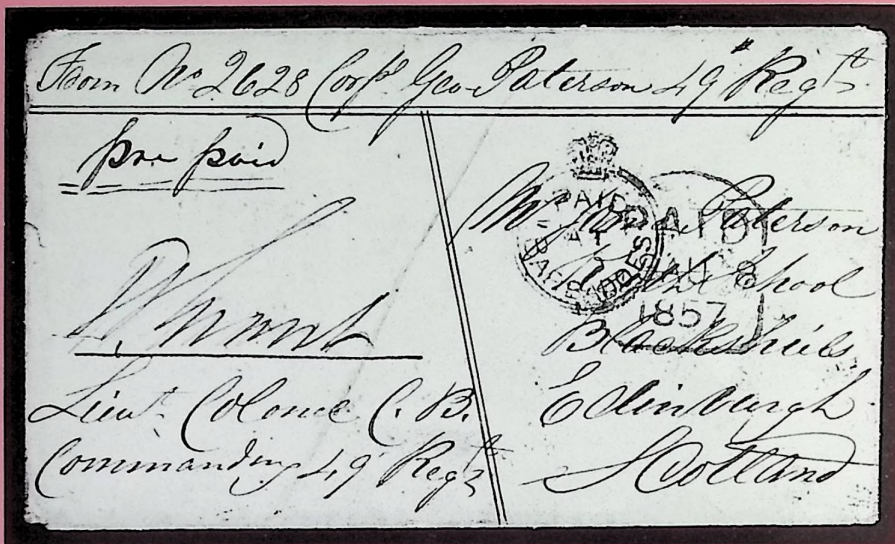 From No 2628 Corpl Geo Paterson 49th Regt
pre paid
Lieut. Colonel C. B.
Commanding 49th Regt
PAID
AT
BARBADOES
PAID
AU 8
1857
Mr Paterson
School
Blackshiels
Edinburgh
Scotland